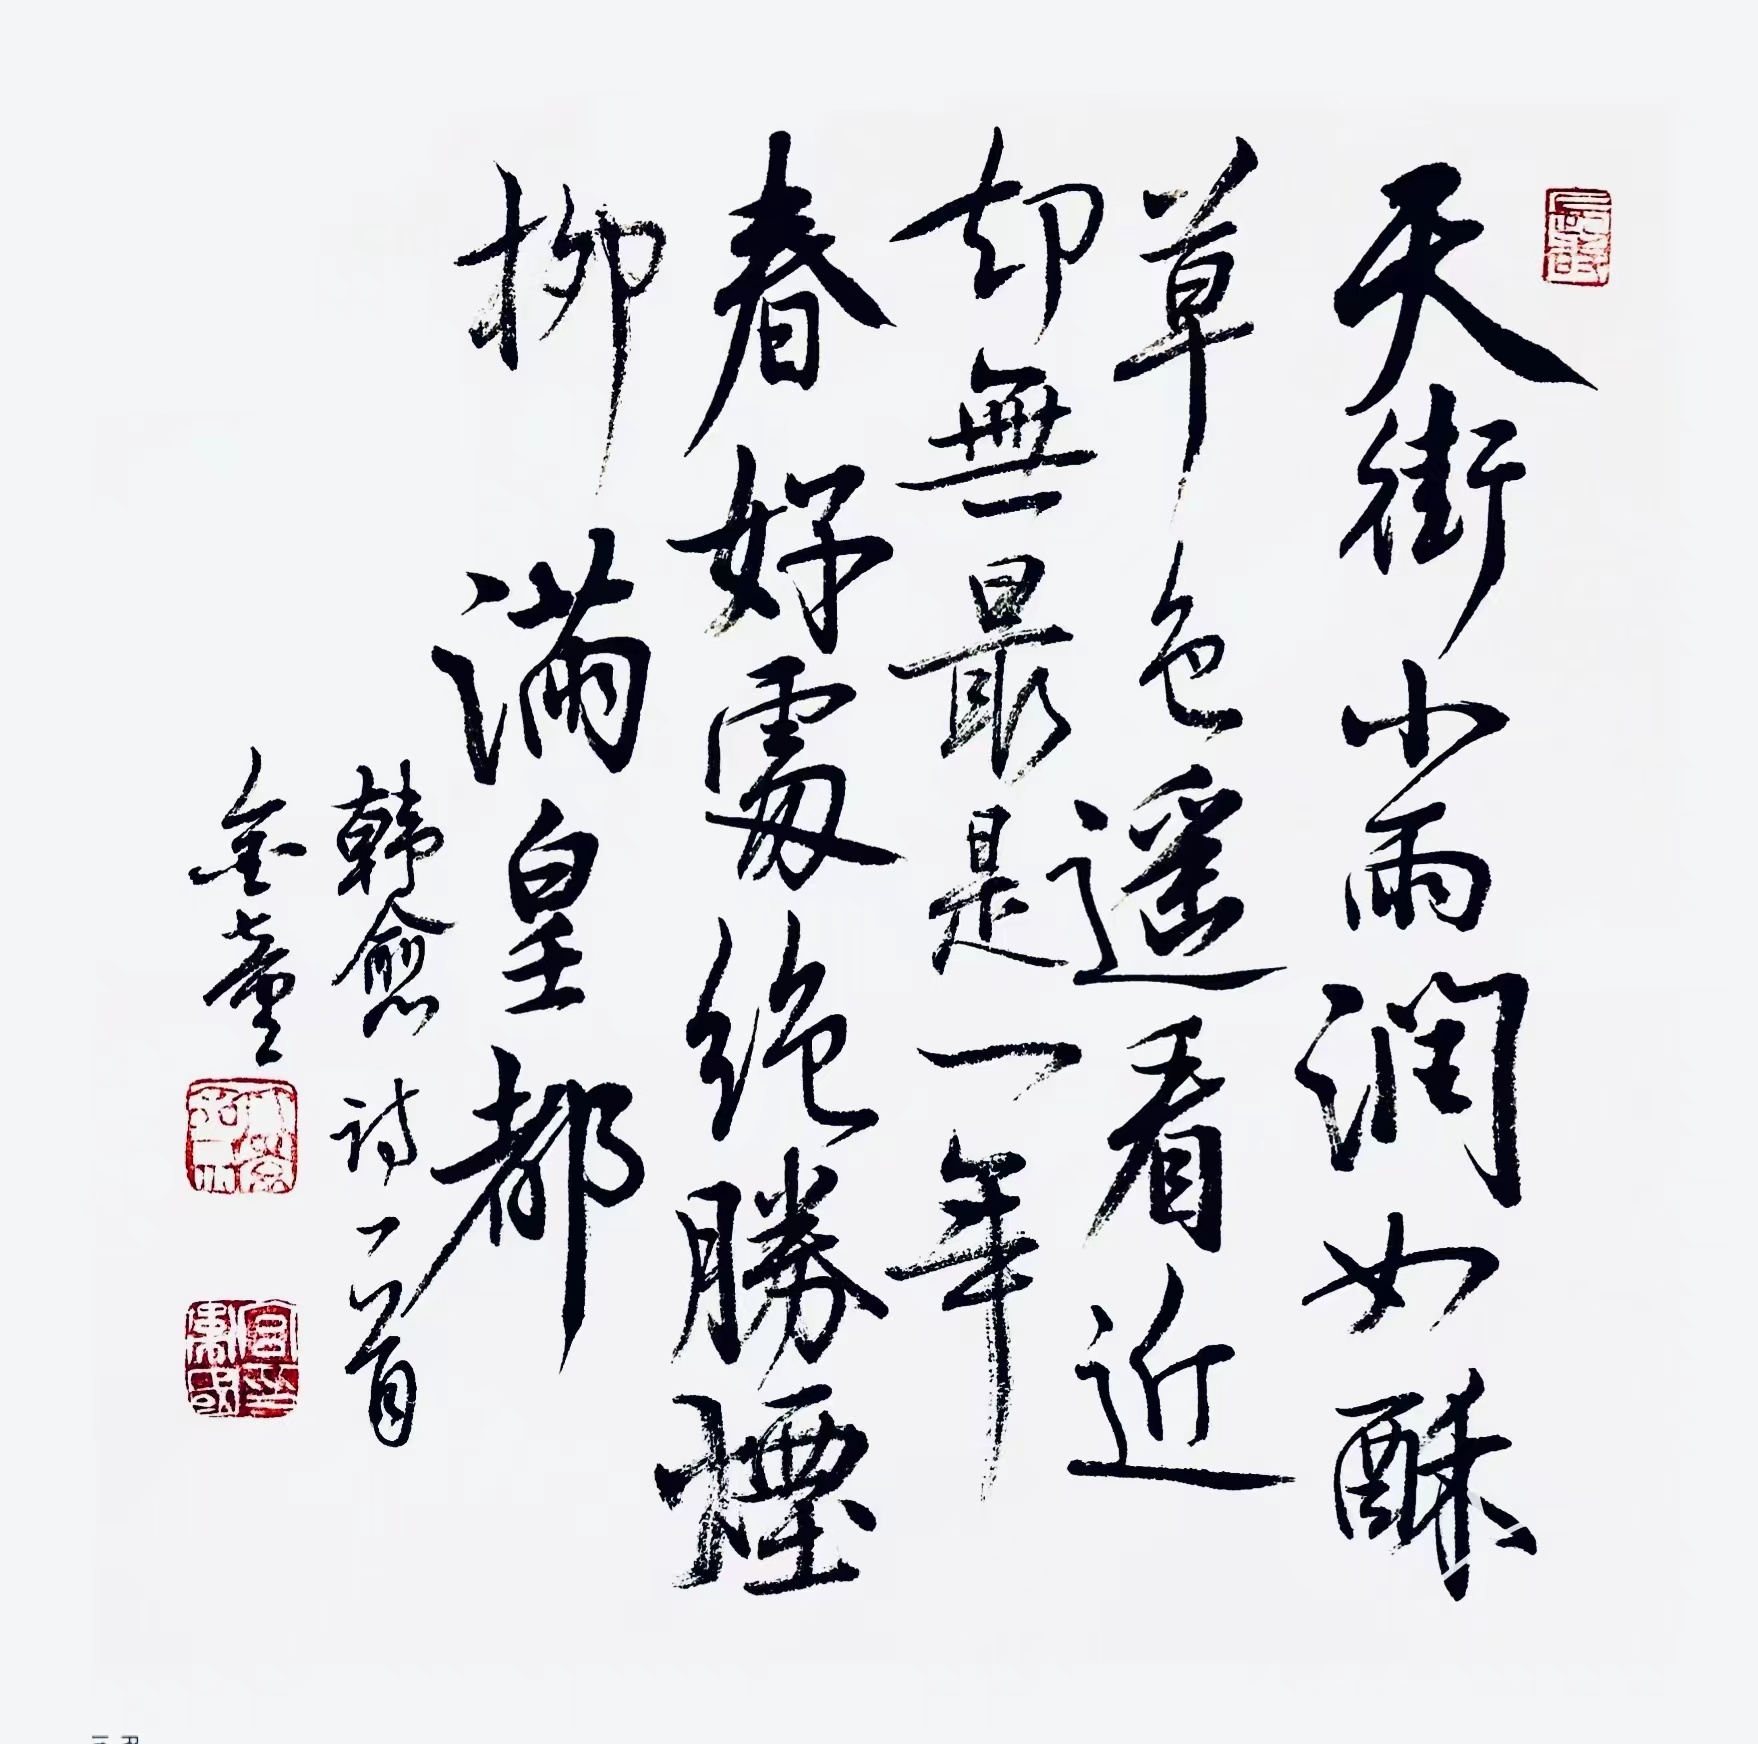 天街小雨潤如酥
草色遥看近
却無最是一年
春好處绝勝煙
柳满皇都
韩愈诗一首
金童